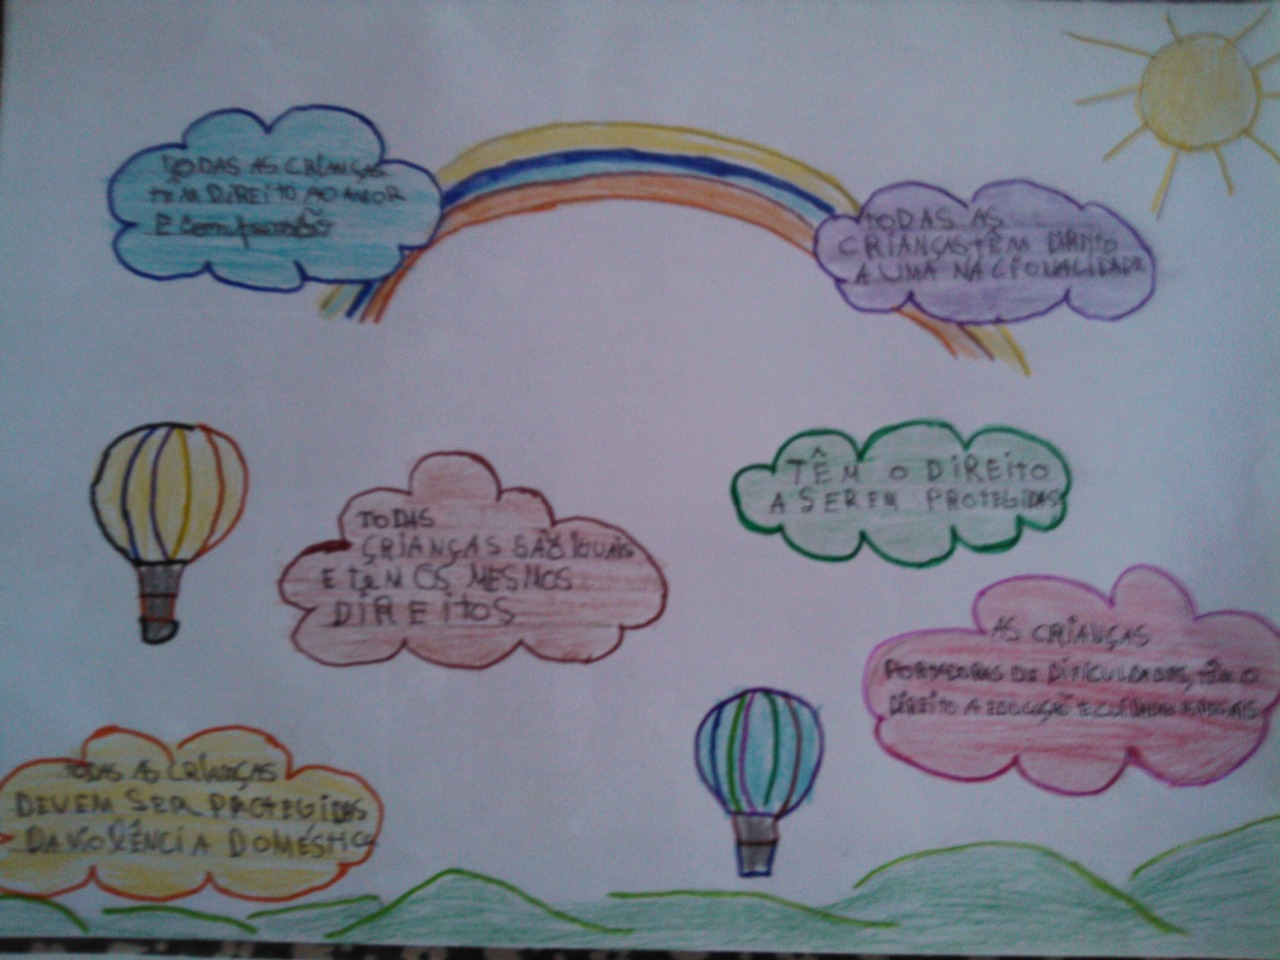 TODAS AS CRIANÇAS
TÊM DIREITO AO AMOR
E compreensão
TODAS AS
CRIANÇAS TÊM DIREITO
A UMA NACIONALIDADE
TÊM O DIREITO
A SEREM PROTEGIDAS
TODAS
CRIANÇAS SÃO IGUAIS
E TÊM OS MESMOS
DIREITOS
AS CRIANÇAS
PORTADORAS DE DIFICULDADES, TÊM O
DIREITO A EDUCAÇÃO E CUIDADOS ESPECIAIS
TODAS AS CRIANÇAS
DEVEM SER PROTEGIDAS
DA VIOLÊNCIA DOMÉSTICA